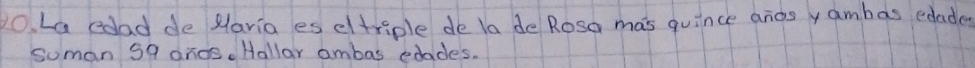 20. La edad de María es el triple de la de Rosa más quince años y ambas edades
suman 59 años. Hallar ambas edades.